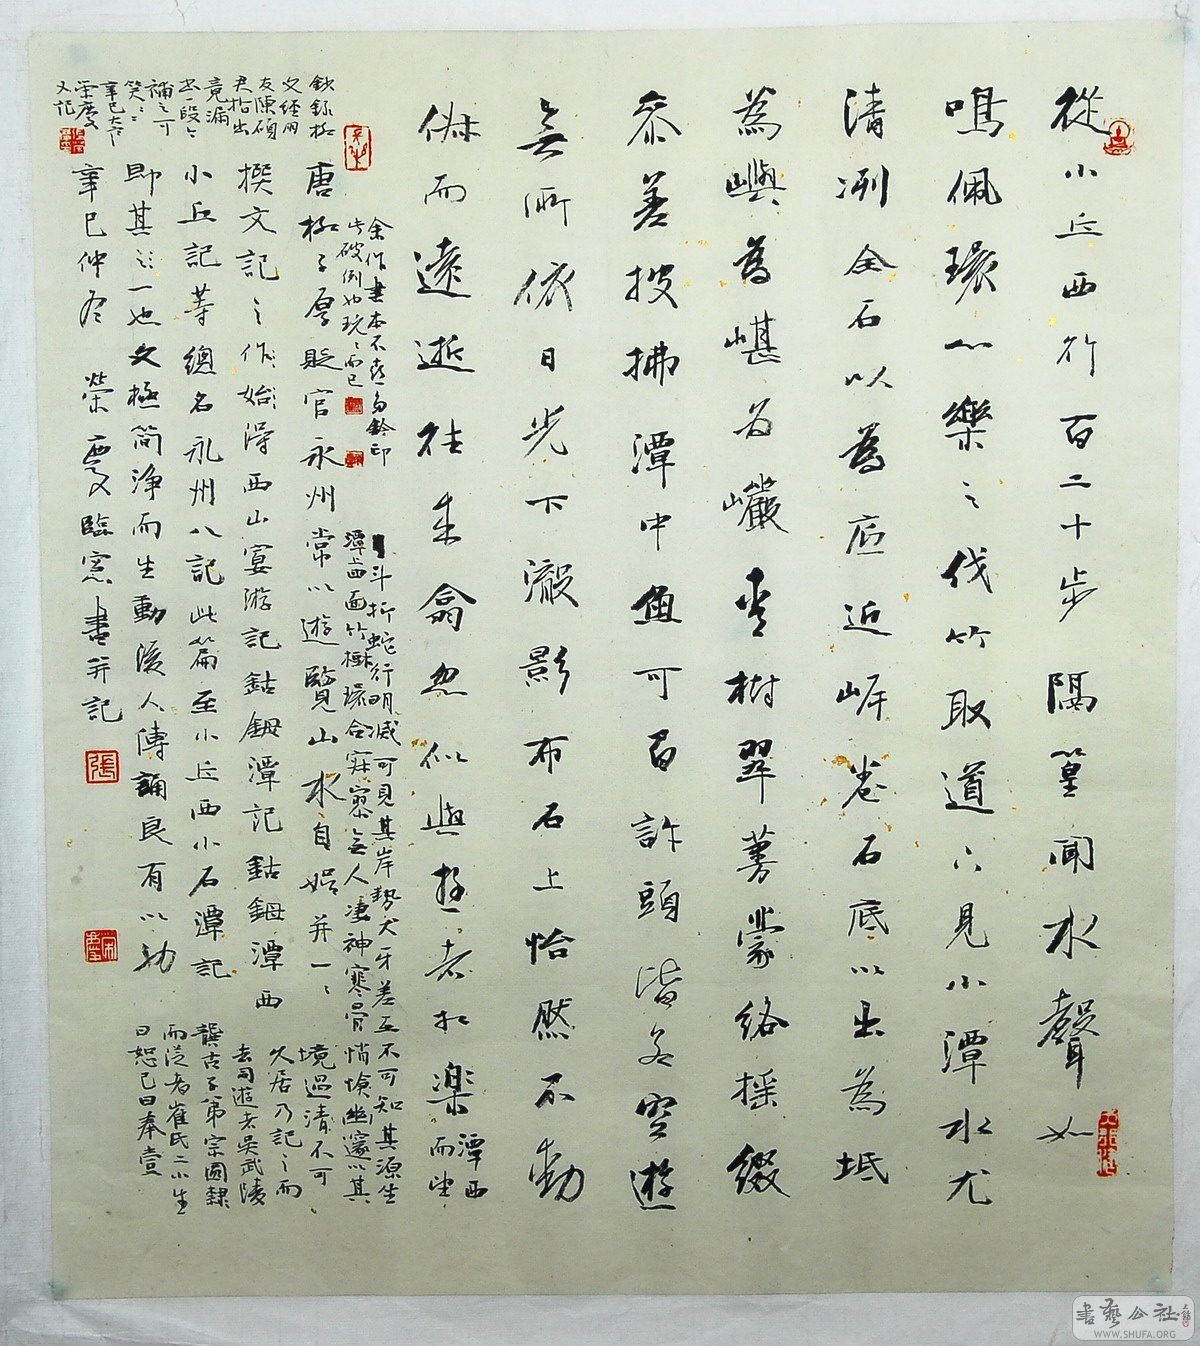 從小丘西行百二十步隔篁聞水聲如
鳴佩環心樂之伐竹取道下見小潭水尤
清冽全石以為底近岸卷石底以出為坻
為嶼為嵁為巖青樹翠蔓蒙絡搖綴
參差披拂潭中魚可百許頭皆若空游
無所依日光下澈影布石上怡然不動
俶而遠逝往來翕忽似與游者相樂
潭西
而望
斗折蛇行明滅可見其岸勢犬牙差互不可知其源坐
潭上四面竹樹環合寂寥無人凄神寒骨悄愴幽邃以其
境過清不可
久居乃記之而
去同游者吳武陵
龔古子弟宗圓隸
而從者崔氏二小生
曰恕己曰奉壹
余作書本不喜多鈐印
此破例也玩玩而已
唐柳子厚貶官永州常以遊覽山水自娛并一一
撰文記之作始得西山宴游記鈷鉧潭記鈷鉧潭西
小丘記等總名永州八記此篇至小丘西小石潭記
即其之一也文極簡淨而生動後人傳誦良有以
辛巳仲冬榮慶臨窗書并記
欽錄柳
文經朋
友陳碩
君指出
竟漏
書一段
補之可
笑
辛巳大
榮慶
又記
張
書藝公社
WWW.SHUFA.ORG